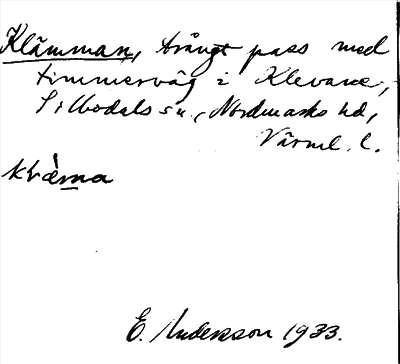 Klämman, trångt pass med
timmerväg i Klevane,
Silbodals sn., Nordmarks hd,
Värml. l.
E. Andersson 1933.